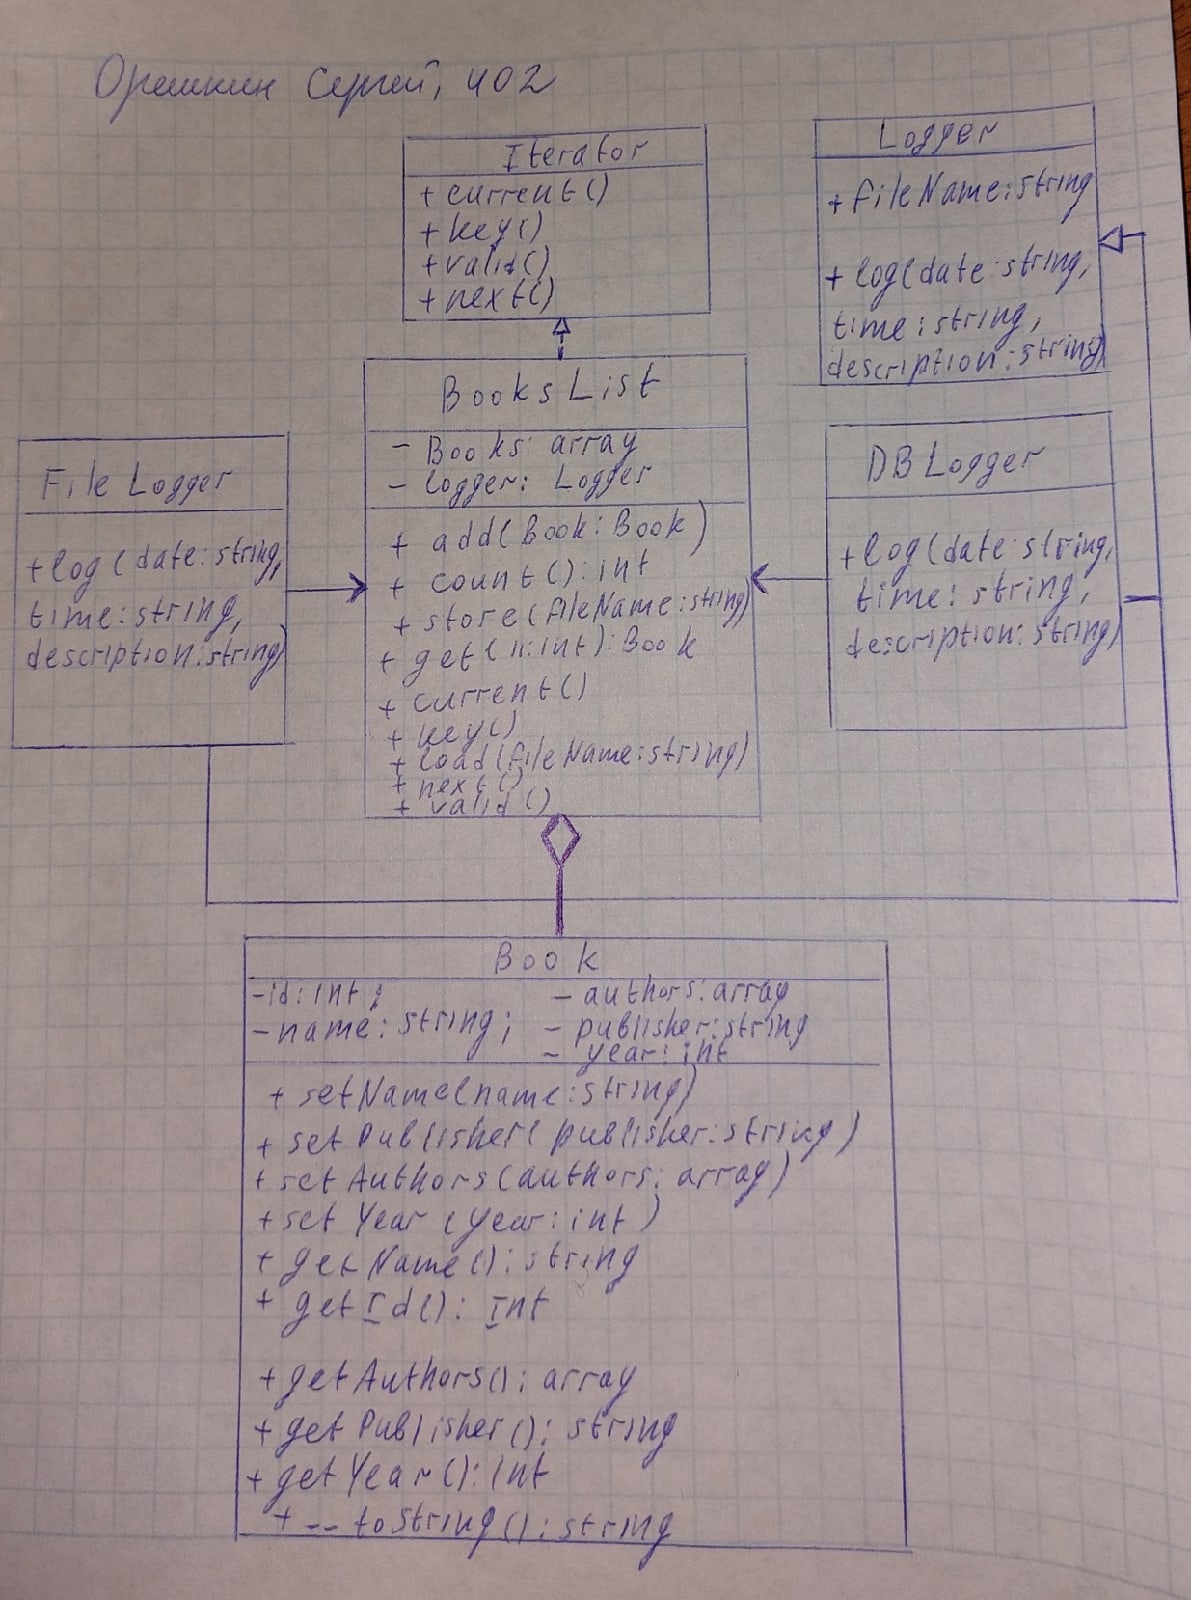 Орешкин Сергей, 402
Iterator
+ current()
+ key()
+ valid()
+ next()
Logger
+ fileName: string
+ log(date: string,
time: string,
description: string)
BooksList
- Books: array
- logger: Logger
+ add(Book: Book)
+ count(): int
+ store(fileName: string)
+ get(n: int): Book
+ current()
+ key()
+ load(fileName: string)
+ next()
+ valid()
File Logger
+ log(date: string,
time: string,
description: string)
DB Logger
+ log(date: string,
time: string,
description: string)
Book
- id: int;
- name: string;
- authors: array
- publisher: string
- year: int
+ setName(name: string)
+ setPublisher(publisher: string)
+ setAuthors(authors: array)
+ setYear(year: int)
+ getName(): string
+ getId(): Int
+ getAuthors(): array
+ getPublisher(): string
+ getYear(): int
+ __toString(): string